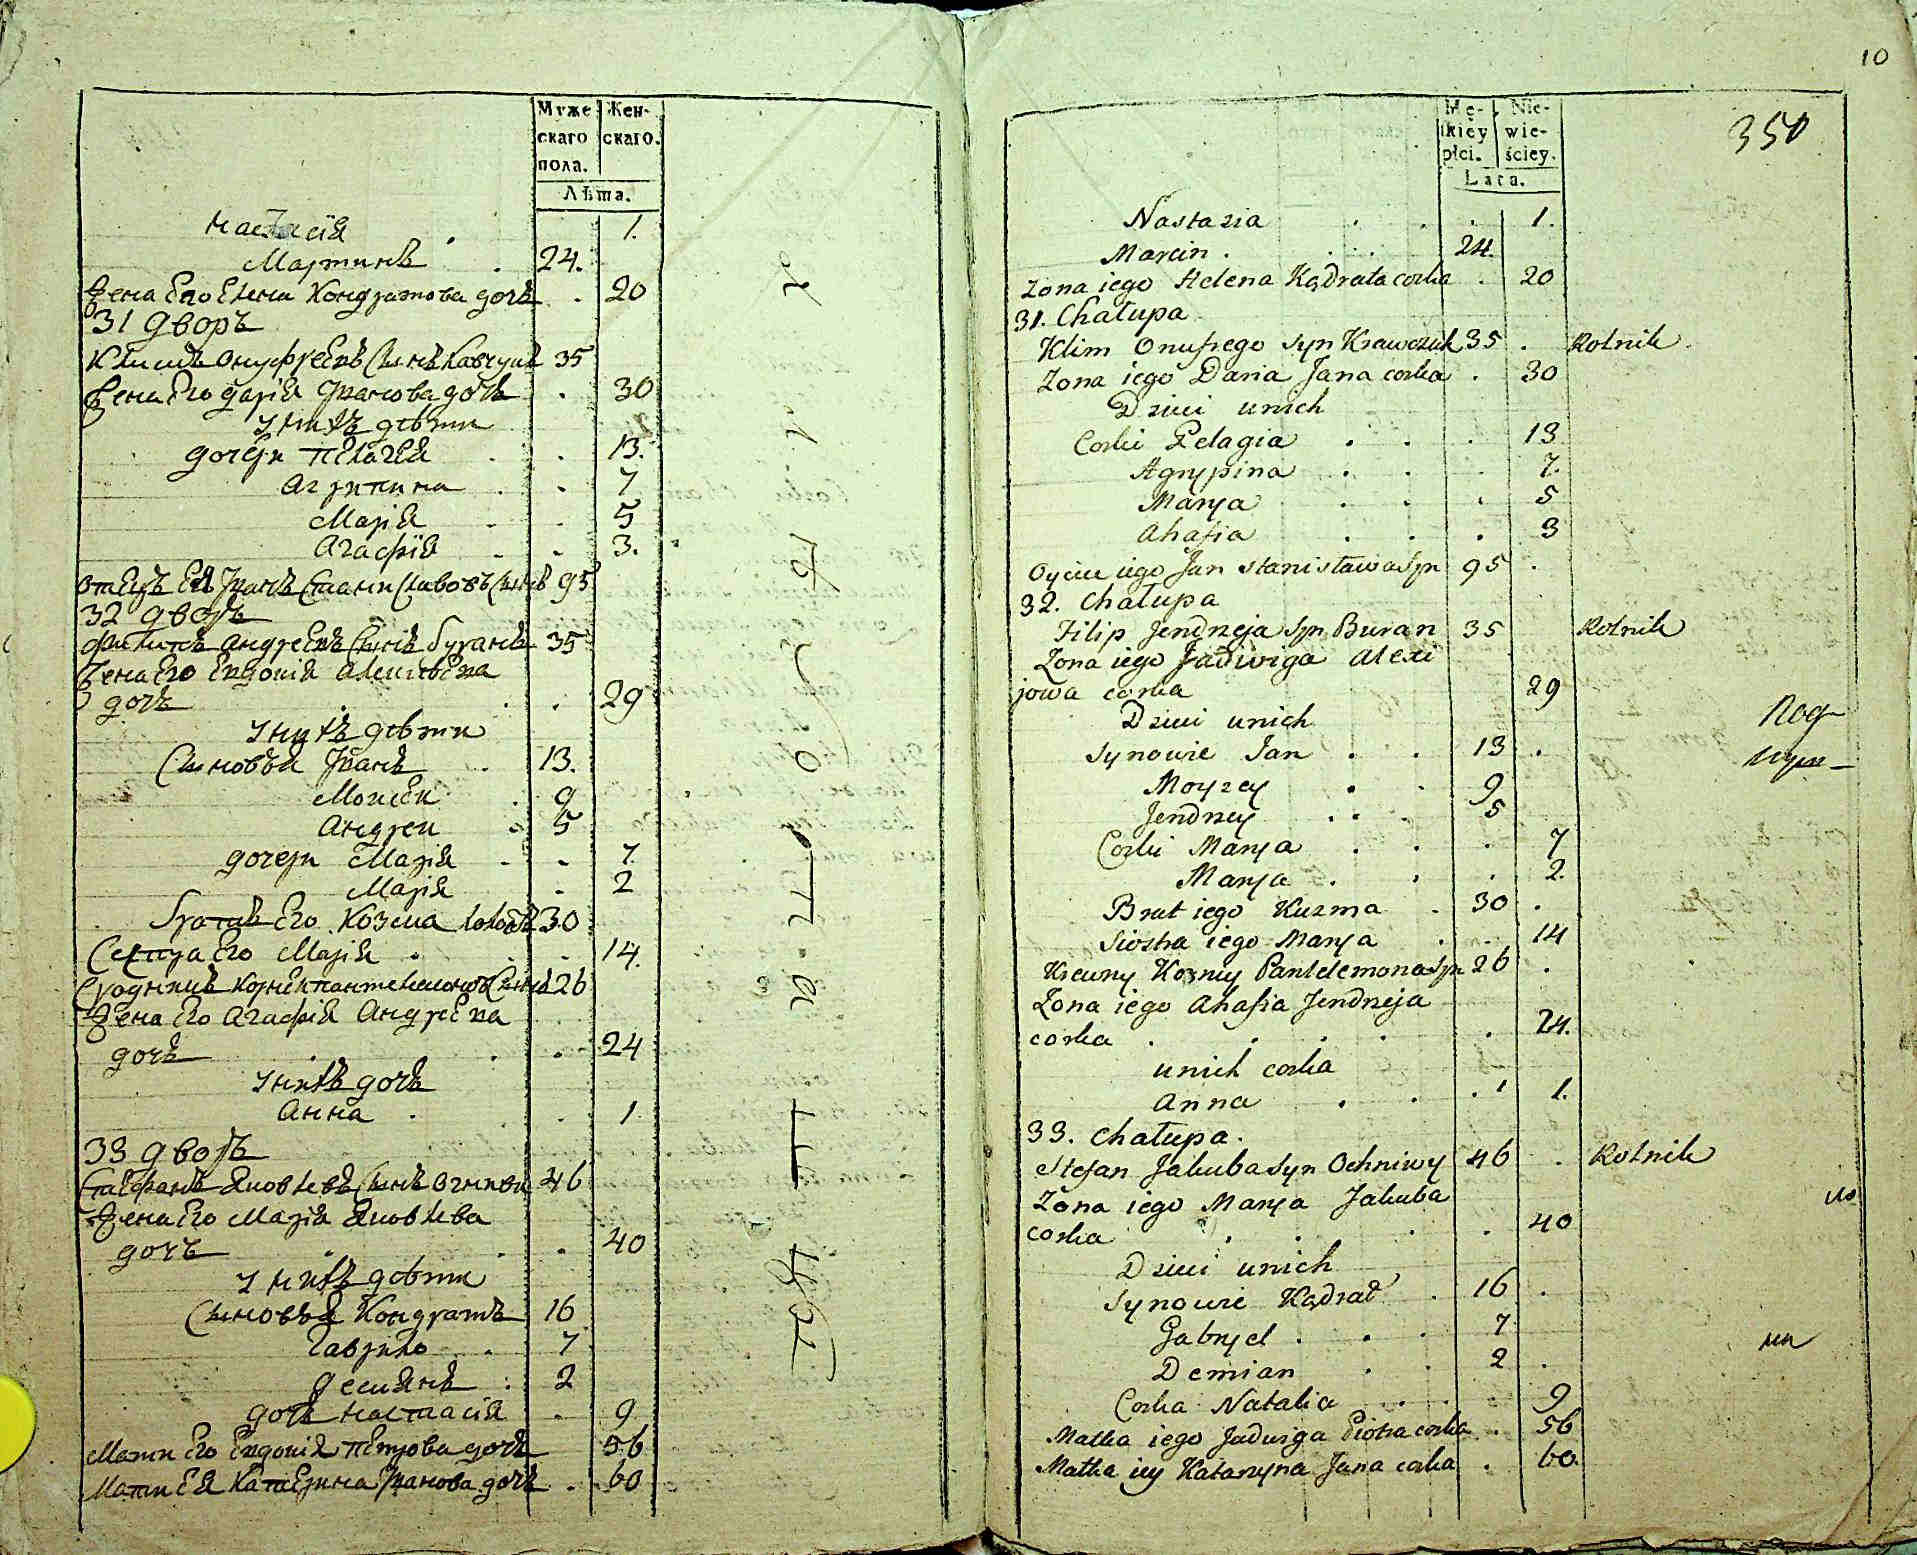 Муже
скаго
пола.
Жен-
скаго.
Лѣта.
Настасія . 1.
Мартинъ . 24.
Жена Его Елена Кондратова дочь . 20
31 дворъ
Климъ Онуфреевъ Сынъ Кавчукъ 35
Жена Его Дарія Иванова дочь . 30
У нихъ дѣти
дочери Пелагея . . 13.
Агрипина . . 7
Марія . . 5
Агафія . . 3.
Отецъ Ея Иванъ Станиславовъ Сынъ 95
32 дворъ
Филипъ Андреевъ Сынъ Буранъ 35
Жена Его Евдокія Алексѣева
дочь . . 29
У нихъ дѣти
Сыновья Иванъ . 13.
Моисей . 9
Андрей . 5
дочери Марія . . 7
Марія . 2
Братъ Его Козма холостъ 30
Сестра Его Марія . . 14.
Сродникъ Корней Пантелемоновъ Сынъ 26
Жена Его Агафія Андреева
дочь . . . 24
У нихъ дочь
Анна . . 1.
33 дворъ
Стефанъ Яковлевъ Сынъ Огнивый 46
Жена Его Марія Яковлева
дочь . . . 40
У нихъ дѣти
Сыновья Кондратъ 16
Гаврило . 7
Демянъ . 2
дочь Настасія . 9
Мати Его Евдокія Петрова дочь 56
Мати Ея Катерина Иванова дочь . 60
10
350
Mę-
skiey
płci.
Nie-
wie-
ściey.
Lata.
Nastazia . . . 1.
Marcin . . . 24.
Zona iego Helena Kądrata corka . 20
31. Chałupa
Klim Onufrego syn Krawczuk 35 . Rolnik
Zona iego Daria Jana corka . 30
Dzieci u nich
Corki Pelagia . . . 13
Agrypina . . . 7.
Marya . . . 5
Ahafia . . . 3
Oyciec iego Jan Stanisława syn 95 .
32. Chałupa
Filip Jendrzeja syn Buran 35 Rolnik
Zona iego Jadwiga Alexi
jowa corka 29
Dzieci u nich
Synowie Jan . . 13 .
Moyzey . . 9
Jendrzey . . . 5
Corki Marya . . . 7
Marya . . . 2.
Brat iego Kuzma . 30 .
Siostra iego Marya . . 14
Krewny Korniy Pantelemona syn 26 .
Zona iego Ahafia Jendrzeja
corka . . . . 24.
u nich corka
Anna . . . 1.
33. Chałupa.
Stefan Jakuba syn Ochniwy 46 . Rolnik
Zona iego Marya Jakuba
corka . . . . 40
Dzieci u nich
Synowie Kądrat . 16 .
Gabryel . . . 7
Demian . . 2 .
Corka Natalia . . . 9
Matka iego Jadwiga Piotra corka . 56
Matka iey Katarzyna Jana corka . 60.